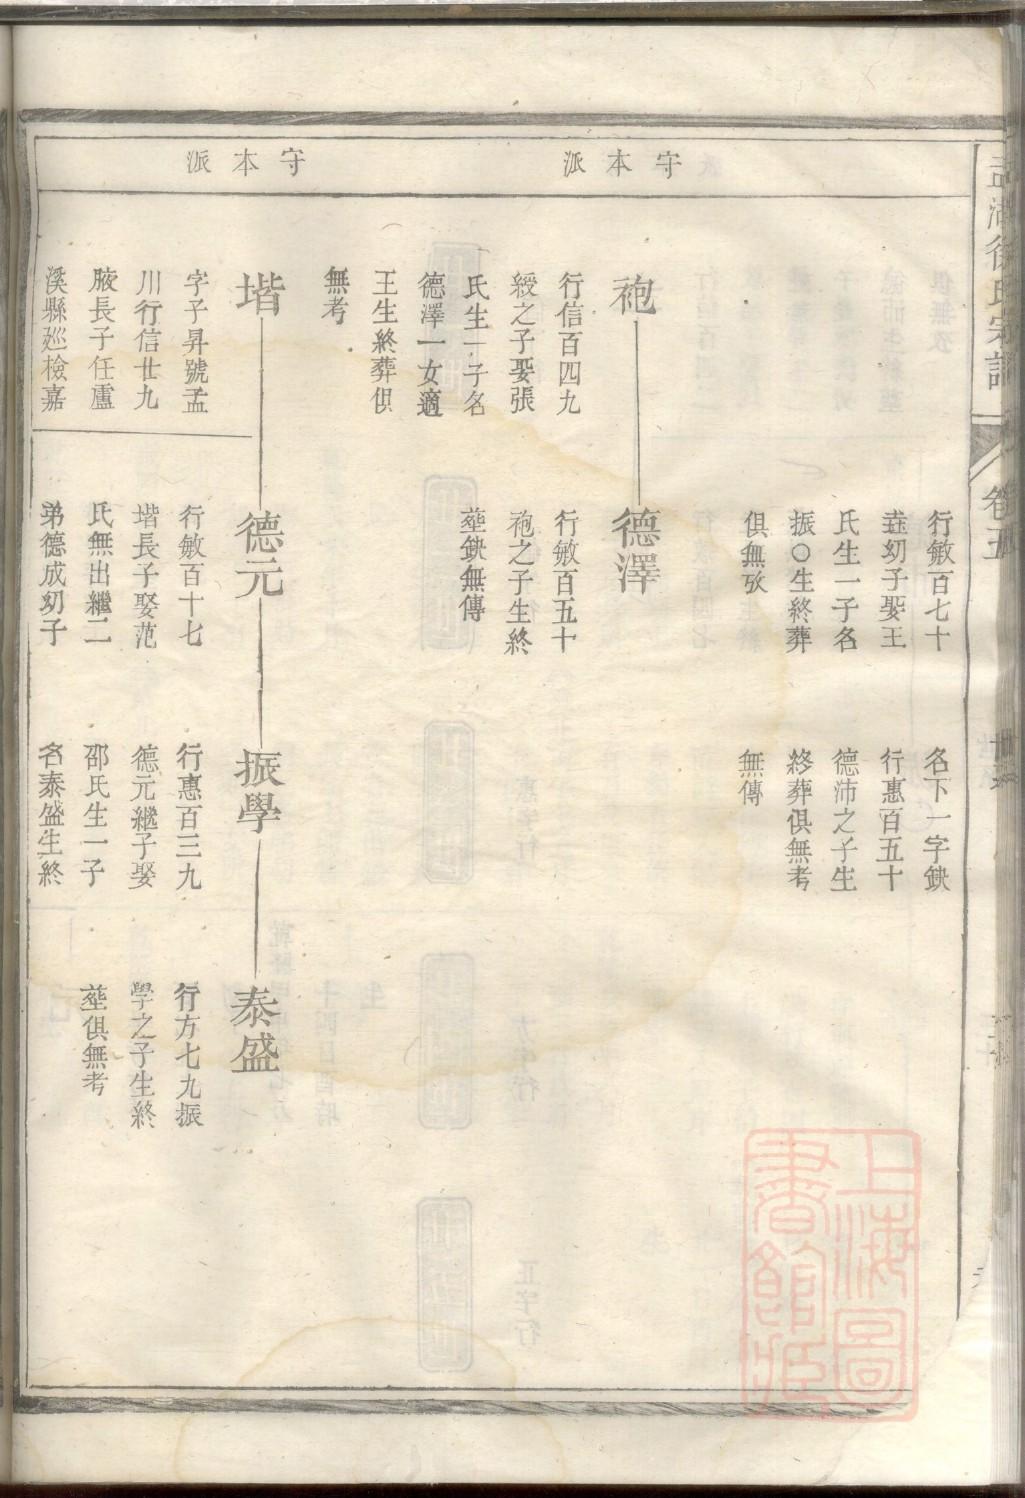 守本派
守本派
徐氏宗譜
卷五
行敏百七十
幼子娶王
氏生一子名
振○生終葬
俱無攷
名下一字缺
行惠百五十
德沛之子生
終葬俱無考
無傳
袍
行信百四九
綬之子娶張
氏生一子名
德澤一女適
王生終葬俱
無考
德澤
行敏百五十
袍之子生終
塟缺無傳
堦
字子昇號孟
川行信廿九
腋長子任盧
溪縣廵檢嘉
德元
行敏百十七
堦長子娶范
氏無出繼二
弟德成幼子
振學
行惠百三九
德元繼子娶
邵氏生一子
名泰盛生終
泰盛
行方七九振
學之子生終
塟俱無考
上海圖
書館藏